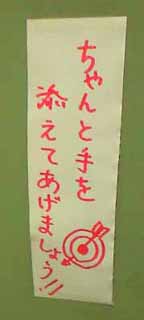 ちゃんと手を
添えてあげましょう!!